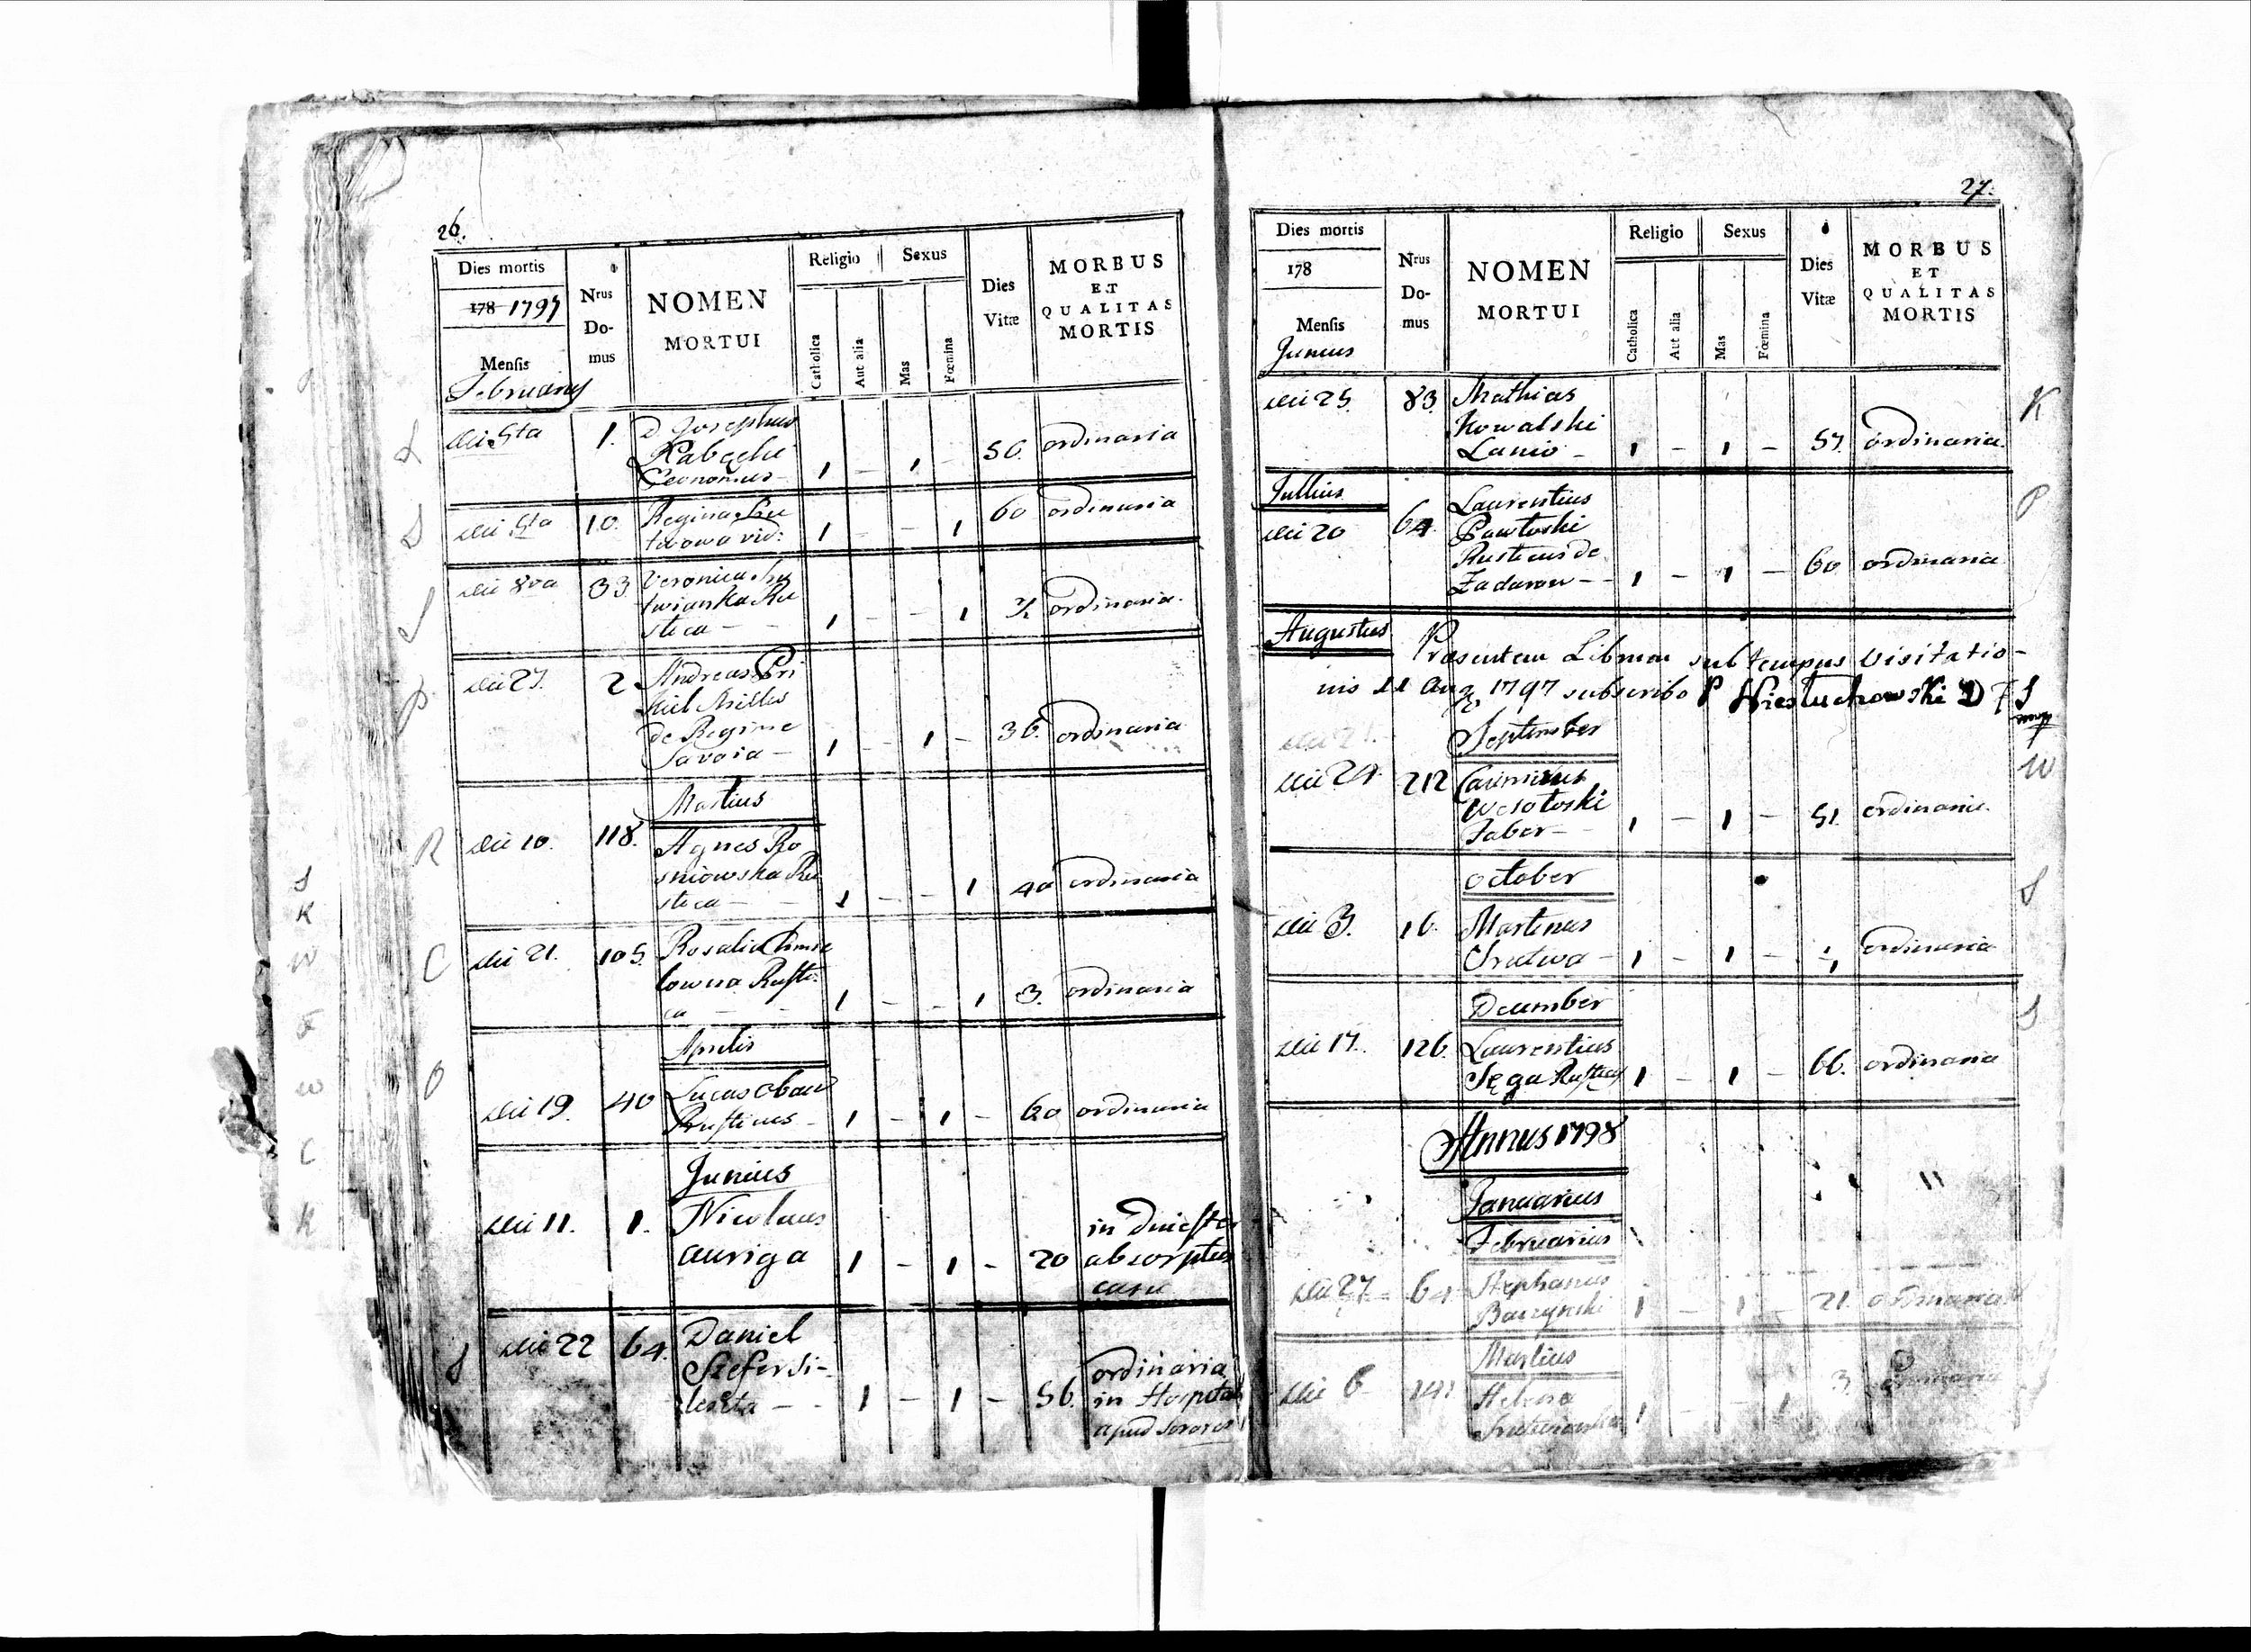 26.
Dies mortis
178 1797
Mensis
Februarius
Nrus
Do-
mus
NOMEN
MORTUI
Religio
Catholica
Aut alia
Sexus
Mas
Fœmina
Dies
Vitæ
MORBUS
ET
QUALITAS
MORTIS
die 5ta 1. D Josephus
1 - 1 - 56 ordinaria
die 5ta 10. Regina
vid: 1 - - 1 60 ordinaria
die 8va 33 Veronica
Ru
stica - - 1 - - 1 ordinaria.
P die 27. 2 Andreas Pri
Miles
de Regime
Savoia - 1 - 1 - 36. ordinaria
Martius
R die 10. 118. Agnes Ro
sniowska Ru
stica - - 1 - - 1 40 ordinaria
C die 21. 105. Rosalia
lowna Rusti
ca - - 1 - - 1 3. ordinaria
Aprilis
O die 19. 40 Lucas
Rusticus - 1 - 1 - 60 ordinaria
Junius
die 11. 1. Nicolaus
auriga 1 - 1 - 20 in Dniestr
absorptus
casu
S die 22 64. Daniel
1 - 1 - 56. ordinaria
in Hospitali
apud sorores
S
K
W
F
w
C
K
27.
Dies mortis
178
Mensis
Junius
Nrus
Do-
mus
NOMEN
MORTUI
Religio
Catholica
Aut alia
Sexus
Mas
Fœmina
Dies
Vitæ
MORBUS
ET
QUALITAS
MORTIS
die 25. 83. Mathias K
Kowalski
Lanio - 1 - 1 - 57. ordinaria.
Jullius
die 20 64. Laurentius P
Pawłoski
Rusticus de
Zadarow - - 1 - 1 - 60 ordinaria
Augustus
Præsentem Librum sub tempus Visitatio-
nis 11 Aug 1797 subscribo P
September
die 24. 212 Casimirus W
Wesołoski
Faber - 1 - 1 - 51. ordinaria.
October
die 3. 16. Martinus S
1 - 1 - ordinaria
December
die 17. 126. Laurentius S
Sęga Rusticus 1 - 1 - 66. ordinaria
Annus 1798
Januarius
Februarius
die 27 64 Stephanus
Baczynski 1 - 1 - 21. ordinaria
Martius
die 6 141 Helena
1 - - 1 3. ordinaria